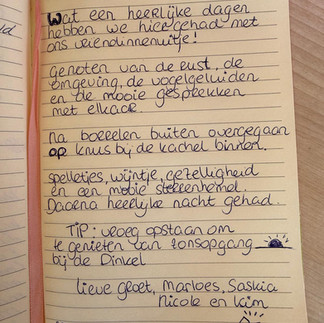 Wat een heerlijke dagen
hebben we hier gehad met
ons vriendinnenuitje!
genoten van de rust, de
omgeving, de vogelgeluiden
en de mooie gesprekken
met elkaar.
na borrelen buiten overgegaan
op knus bij de kachel binnen.
spelletjes, wijntje, gezelligheid
en een mooie sterrenhemel.
Daarna heerlijke nacht gehad.
TIP: vroeg opstaan om
te genieten van zonsopgang
bij de Dinkel
lieve groet, Marloes, Saskia
Nicole en Kim